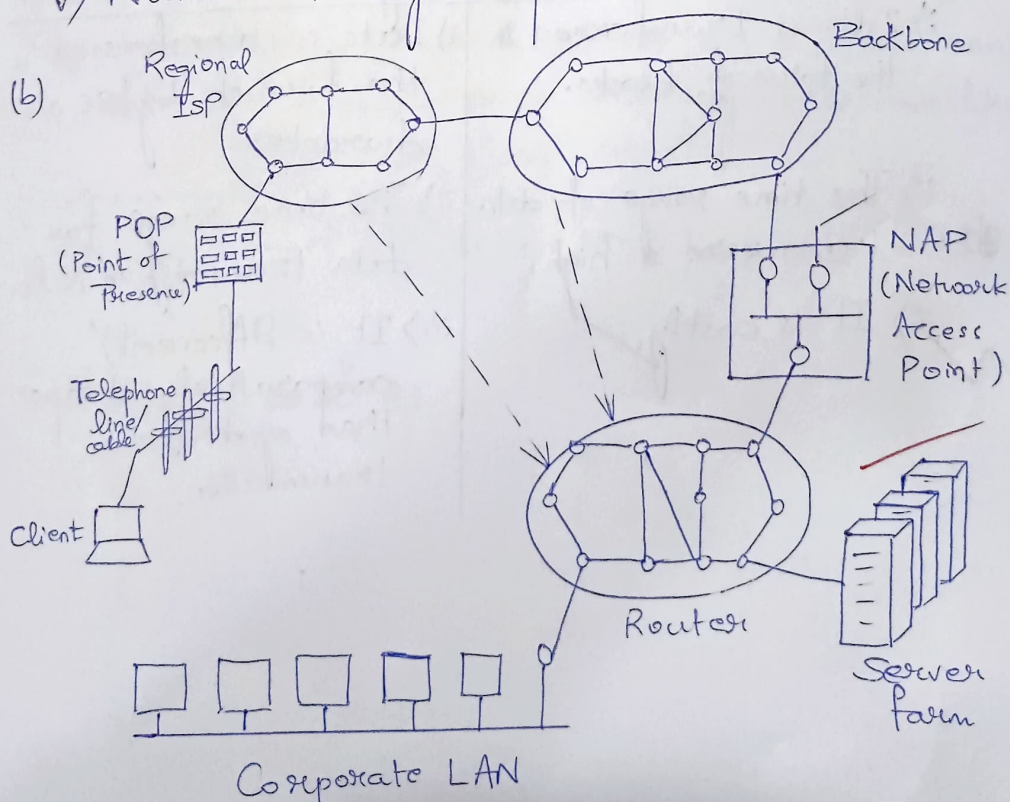 (b)
Regional
ISP
Backbone
POP
(Point of
Presence)
NAP
(Network
Access
Point)
Telephone
line/
cable
Client
Router
Server
farm
Corporate LAN